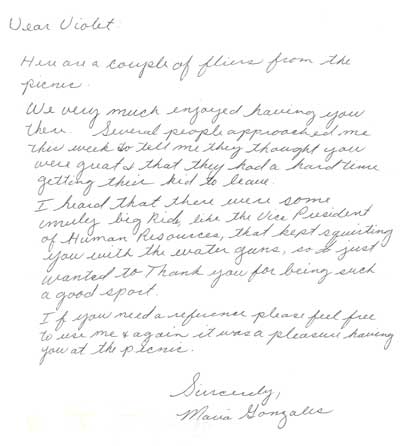 Dear Violet:
Here are a couple of fliers from the
picnic.
We very much enjoyed having you
there. Several people approached me
this week to tell me they thought you
were great & that they had a hard time
getting their kid to leave.
I heard that there were some
unruly big kids, like the Vice President
of Human Resources, that kept squirting
you with the water guns, so I just
wanted to Thank you for being such
a good sport.
If you need a reference please feel free
to use me & again it was a pleasure having
you at the picnic.
Sincerely,
Maria Gonzales